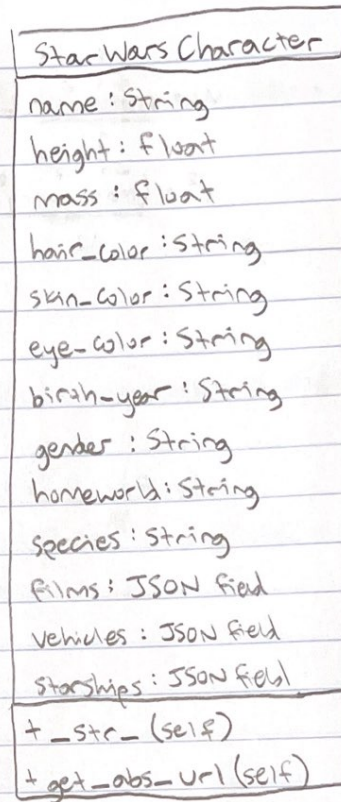 Star Wars Character
name : String
height : float
mass : float
hair_color : String
skin_color : String
eye_color : String
birth_year : String
gender : String
homeworld : String
species : String
films : JSON field
vehicles : JSON field
starships : JSON field
+ _str_ (self)
+ get_abs_url (self)